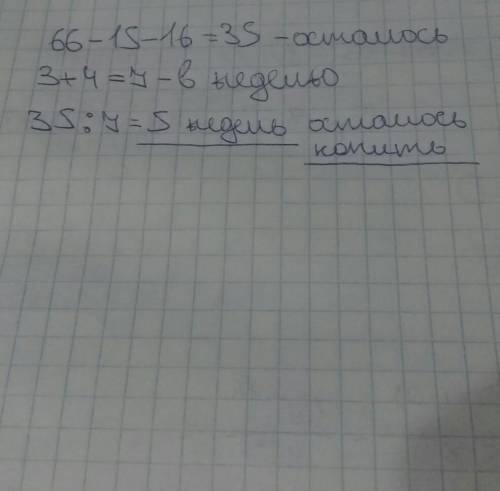 66-15-16=35-осталось
3+4=7-в неделю
35:7=5 недель осталось
копить